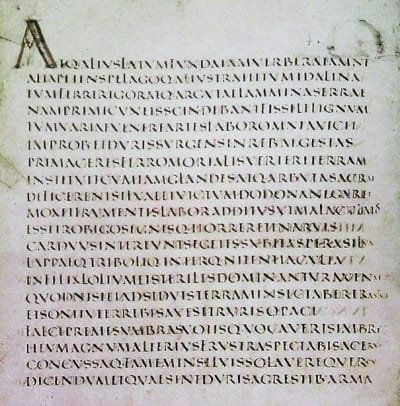 ATQALIVSLATVMFVNDAIAMVERBERATAMNE
ALTAPETENSPELAGOQALIVSTRAHITVMIDALINA
TVMFERRIRIGORATQARGVTAELAMMINASERRAE
NAMPRIMICVNEISSCINDEBANTFISSILELIGNVM
TVMVARIAEVENEREARTESLABOROMNIAVICIT
IMPROBETDVRISVRGENSINREBALGESTAS
PRIMACERESFERROMORTALISVERTERETERRAM
INSTITVITCVMIAMGLANDESATQARBVTASACRAE
DEFICERENTSILVAEETVICTVMDODONANEGARET
MOXETFRVMENTISLABORADDITVSVTMALACVLMOS
ESSETROBIGOSEGNISQHORRERETINARVIS
CARDVVSINTEREVNTSEGETESSVBITASPERASILVA
LAPPAEQTRIBOLIQINTERQNITENTIACVLTA
INFELIXLOLIVMETSTERILESDOMINANTVRAVENAE
QVODNISIETADSIDVISTERRAMINSECTABERERASTRIS
ETSONITVTERREBISAVESETRVRISOPACI
FALCEPREMESVMBRASVOTISQVOCAVERISIMBRE
HEVMAGNVMALTERIVSFRVSTRASPECTABISACER
CONCVSSAQFAMEMINSILVISSOLAVEREQVER
DICENDVMETQVAESINTDVRISAGRESTIBARMA